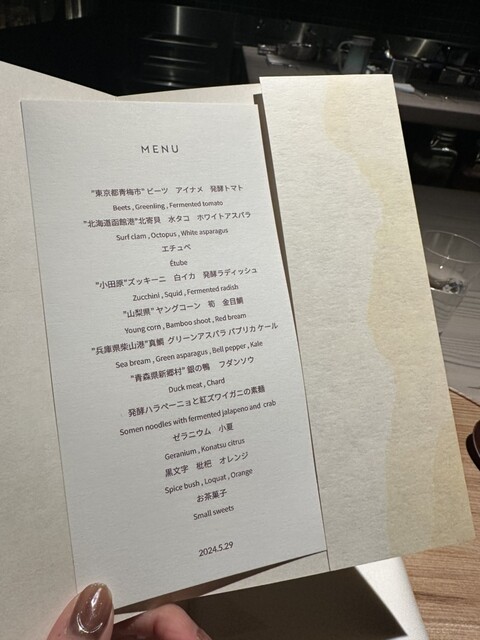 MENU
"東京都青梅市" ビーツ　アイナメ　発酵トマト
Beets , Greenling , Fermented tomato
"北海道函館港"北寄貝　水タコ　ホワイトアスパラ
Surf clam , Octopus , White asparagus
エチュベ
Étube
"小田原"ズッキーニ　白イカ　発酵ラディッシュ
Zucchini , Squid , Fermented radish
"山梨県" ヤングコーン　筍　金目鯛
Young corn , Bamboo shoot , Red bream
"兵庫県柴山港"真鯛　グリーンアスパラ パプリカ ケール
Sea bream , Green asparagus , Bell pepper , Kale
"青森県新郷村" 銀の鴨　フダンソウ
Duck meat , Chard
発酵ハラペーニョと紅ズワイガニの素麺
Somen noodles with fermented jalapeno and crab
ゼラニウム　小夏
Geranium , Konatsu citrus
黒文字　枇杷　オレンジ
Spice bush , Loquat , Orange
お茶菓子
Small sweets
2024.5.29